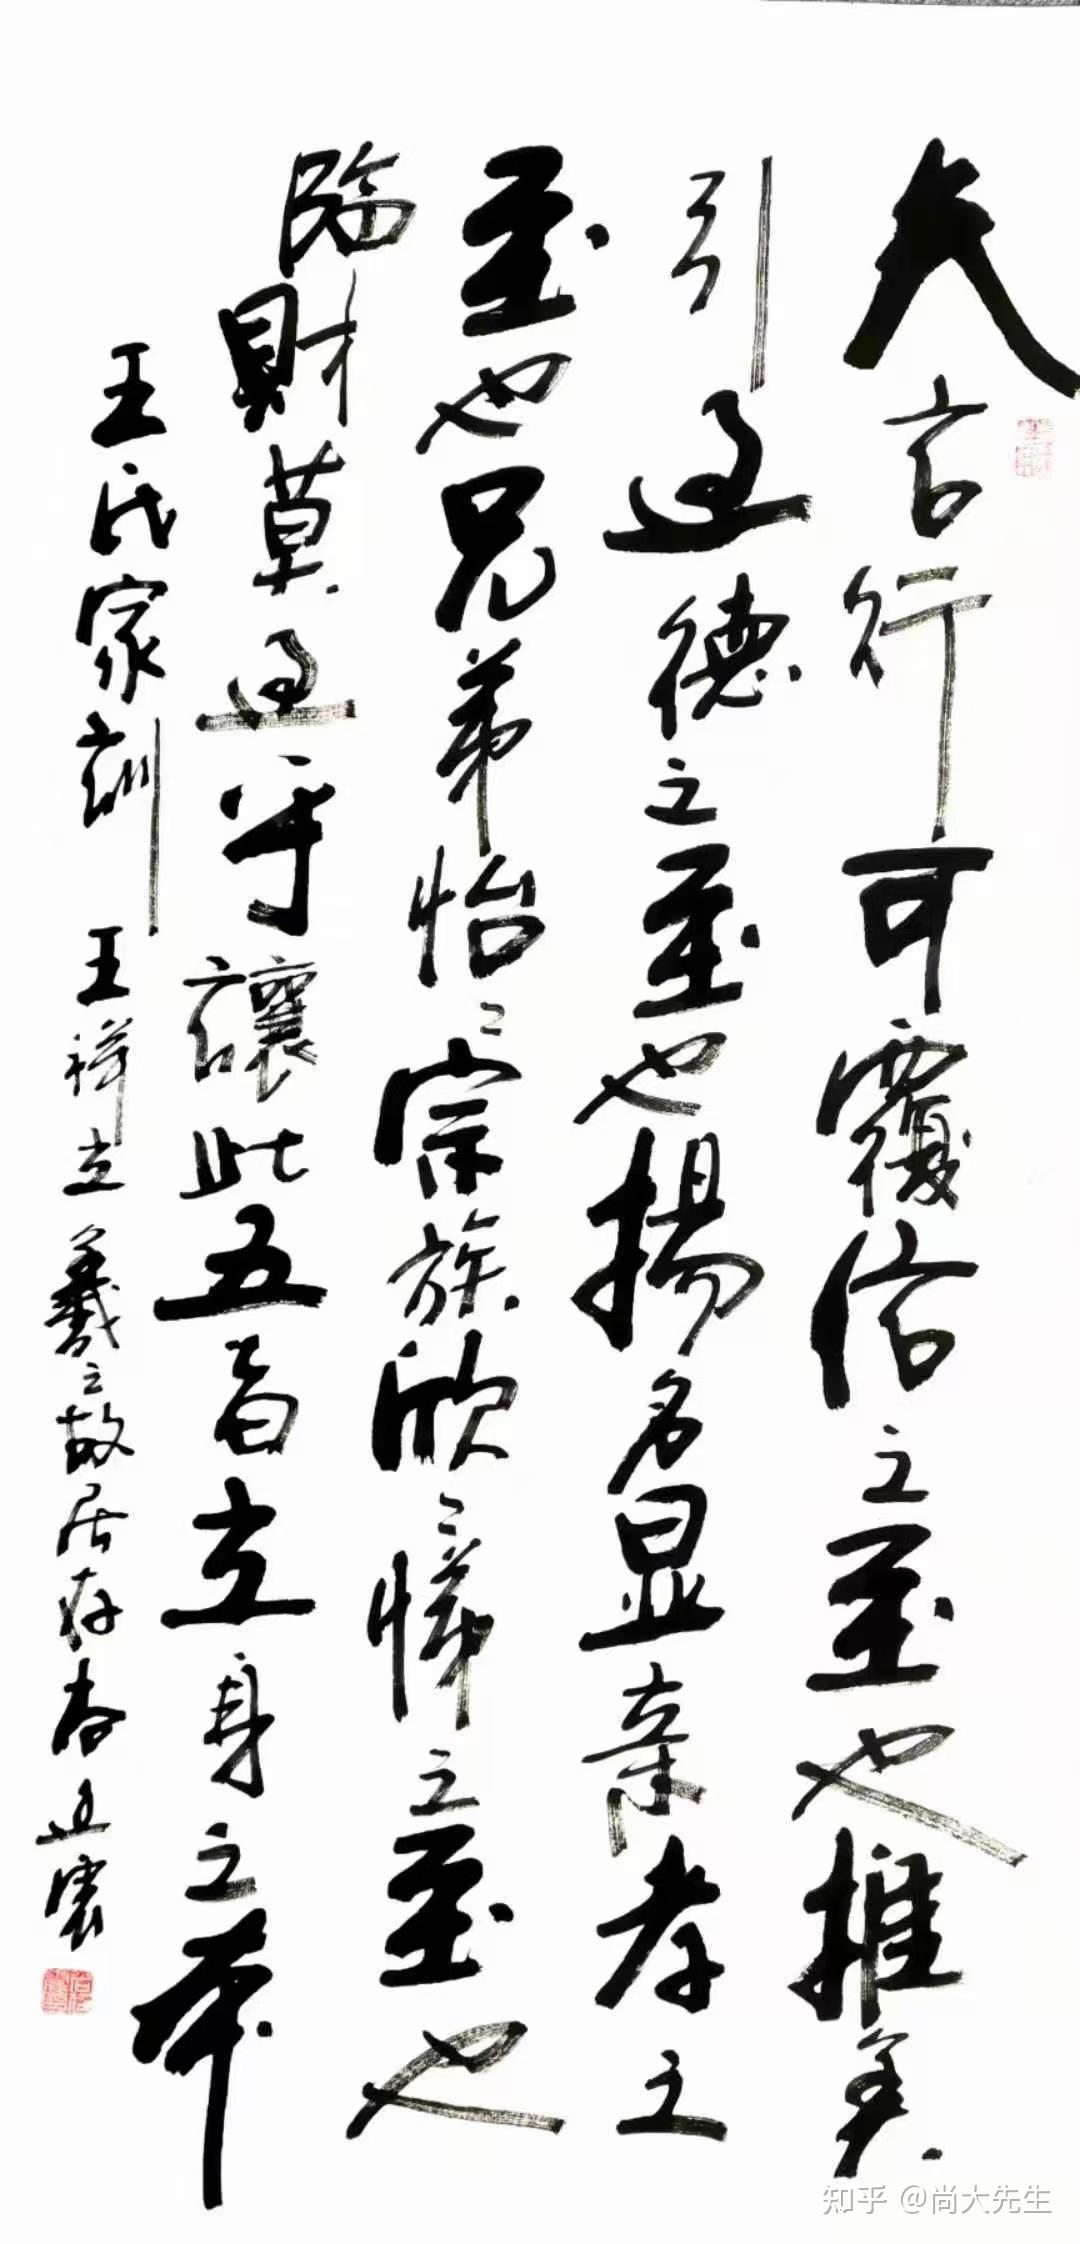 夫言行可覆信之至也推美
引過德之至也揚名显亲孝之
至也兄弟怡〻宗族欣〻悌之至也
臨财莫過乎讓此五者立身之本
王氏家訓 王祥立 羲之故居存春正震
知乎 @尚大先生